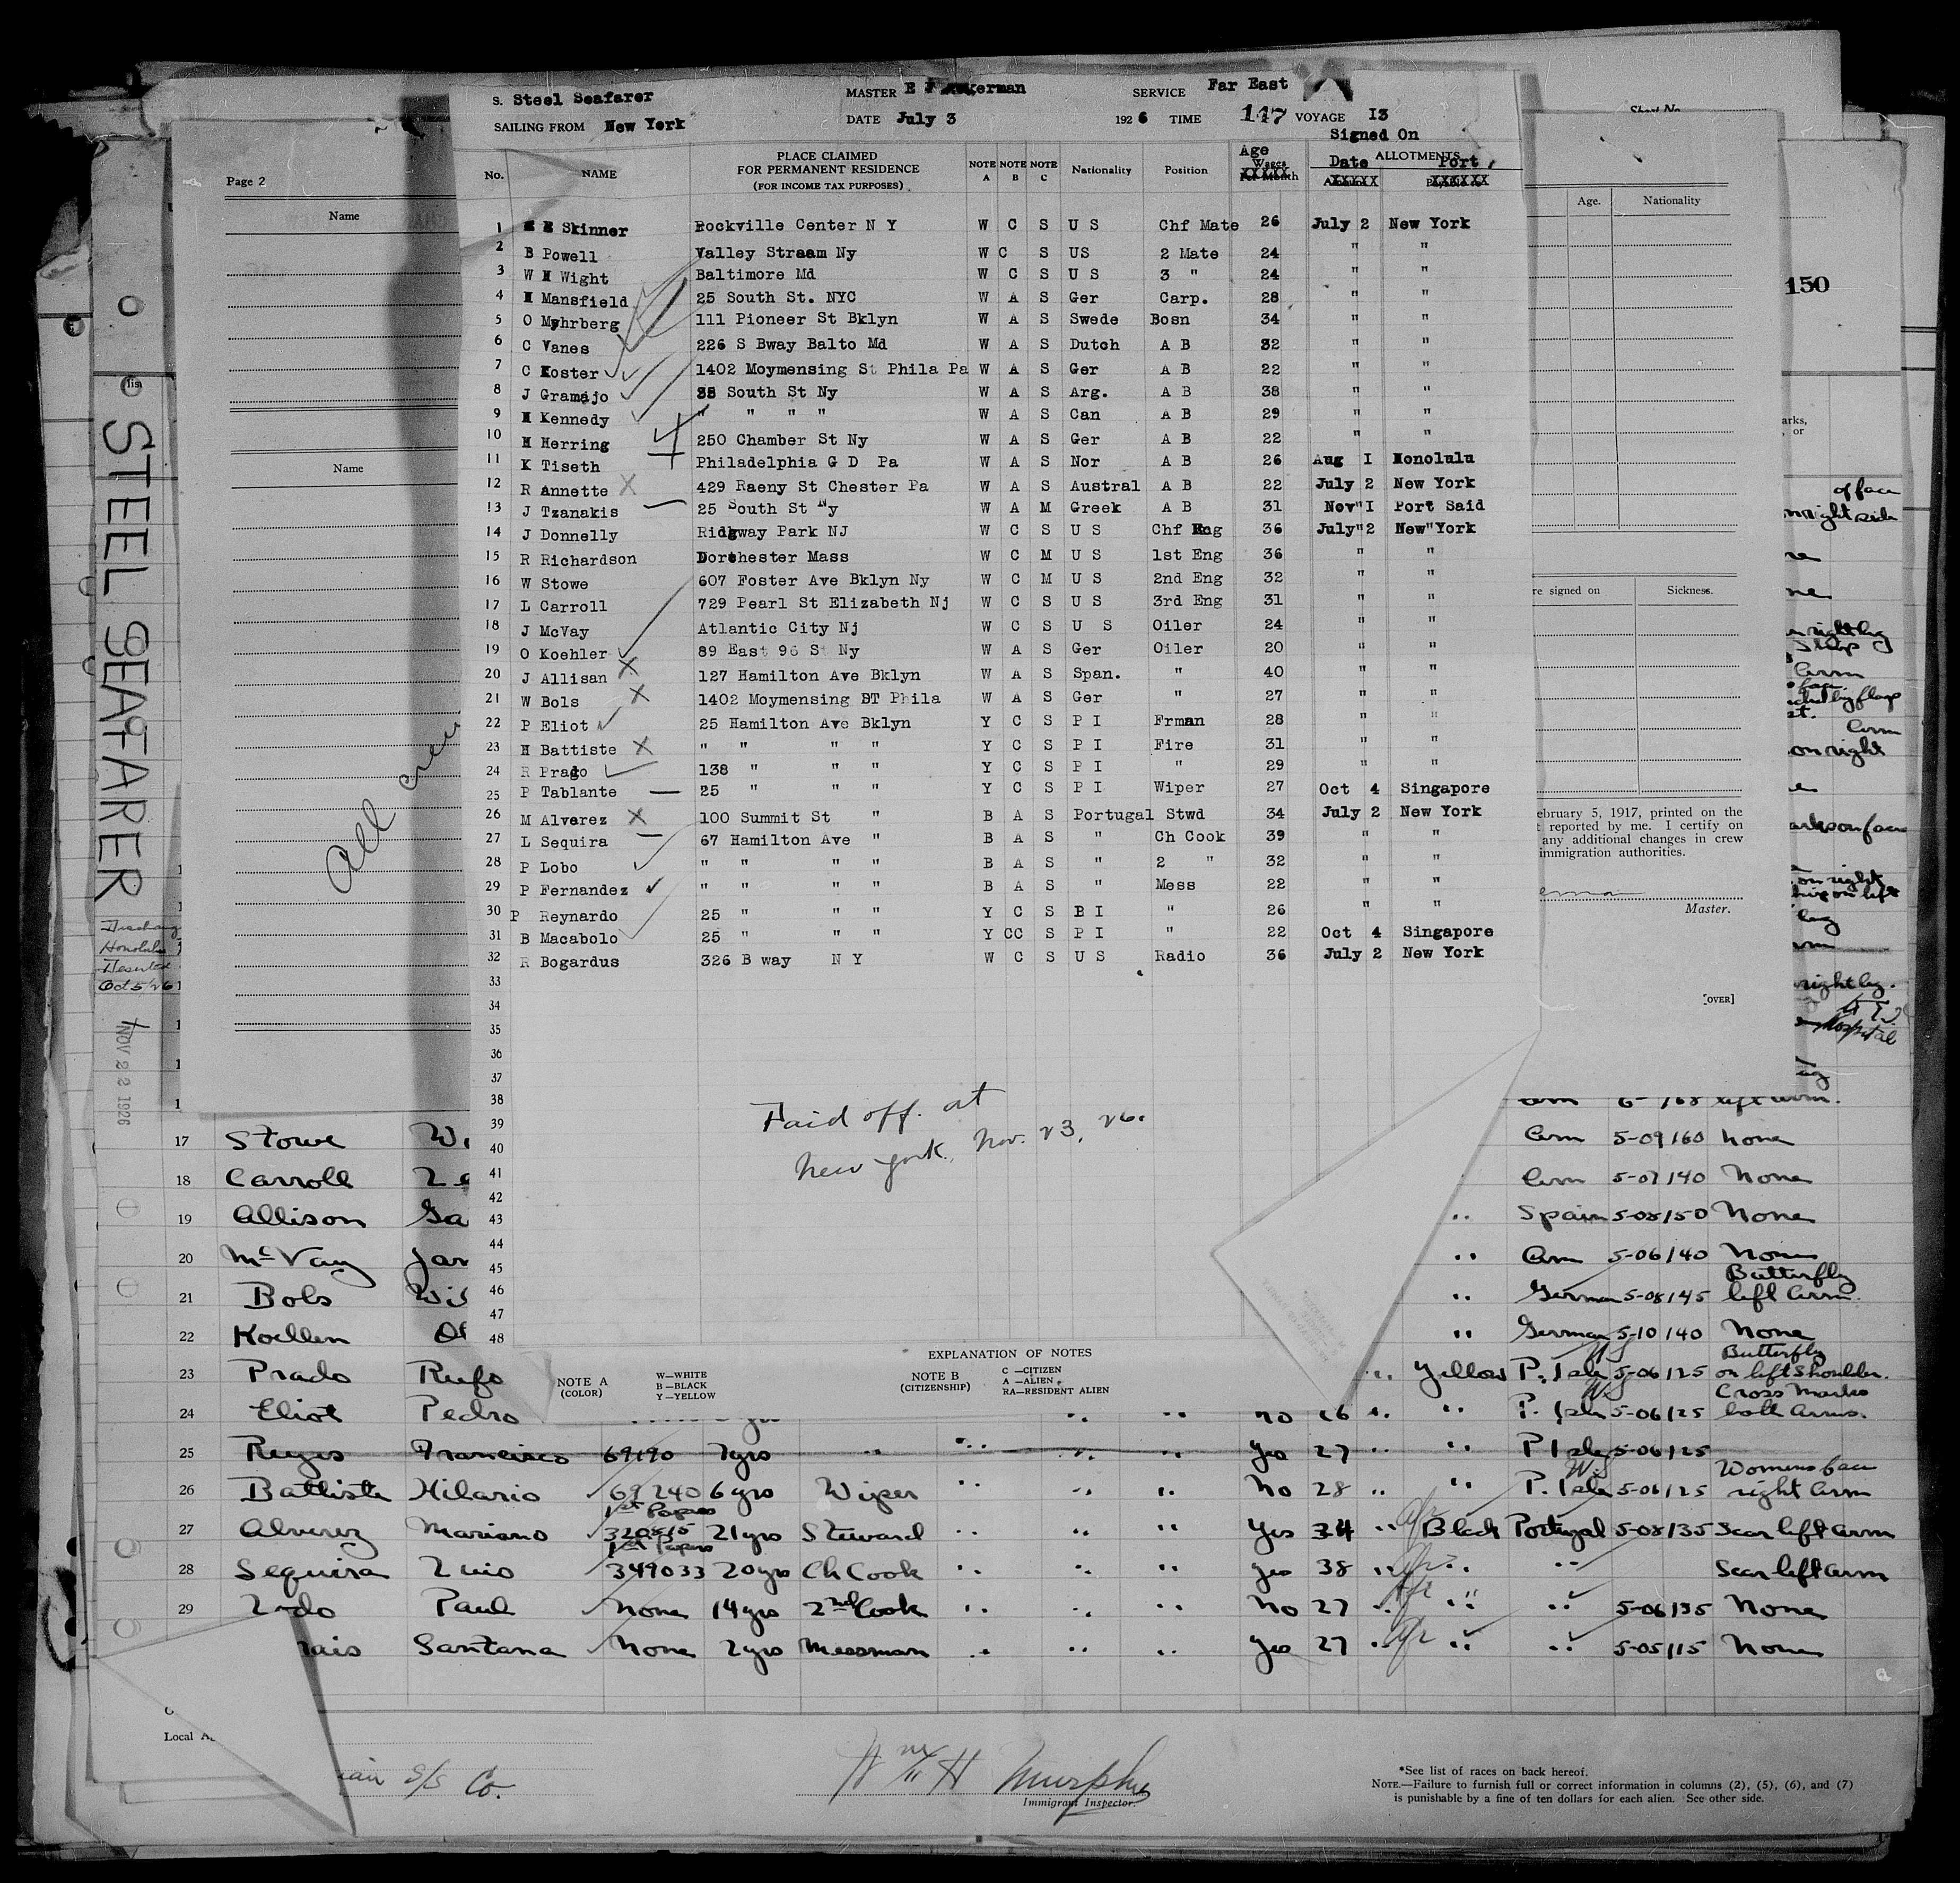 S. Steel Seafarer MASTER E F Ackerman SERVICE Far East
SAILING FROM New York DATE July 3 1926 TIME 147 VOYAGE I3
Signed On
No. NAME PLACE CLAIMED FOR PERMANENT RESIDENCE (FOR INCOME TAX PURPOSES) NOTE A NOTE B NOTE C Nationality Position Age Wages ALLOTMENTS Date Port
1 Skinner Rockville Center N Y W C S U S Chf Mate 26 July 2 New York
2 B Powell Valley Straam Ny W C S US 2 Mate 24 " "
3 W H Wight Baltimore Md W C S U S 3 " 24 " "
4 H Mansfield 25 South St. NYC W A S Ger Carp. 28 " "
5 O Myhrberg 111 Pioneer St Bklyn W A S Swede Bosn 34 " "
6 C Vanes 226 S Bway Balto Md W A S Dutch A B 32 " "
7 C Koster 1402 Moymensing St Phila Pa W A S Ger A B 22 " "
8 J Gramajo South St Ny W A S Arg. A B 38 " "
9 H Kennedy " " " " W A S Can A B 29 " "
10 H Herring 250 Chamber St Ny W A S Ger A B 22 " "
11 K Tiseth Philadelphia G D Pa W A S Nor A B 26 Aug I Honolulu
12 R Annette 429 Raeny St Chester Pa W A S Austral A B 22 July 2 New York
13 J Tzanakis 25 South St Ny W A M Greek A B 31 Nov I Port Said
14 J Donnelly Ridgway Park NJ W C S U S Chf Eng 36 July 2 New York
15 R Richardson Dorchester Mass W C M U S 1st Eng 36 " "
16 W Stowe 607 Foster Ave Bklyn Ny W C M U S 2nd Eng 32 " "
17 L Carroll 729 Pearl St Elizabeth Nj W C S U S 3rd Eng 31 " "
18 J McVay Atlantic City Nj W C S U S Oiler 24 " "
19 O Koehler 89 East 96 St Ny W A S Ger Oiler 20 " "
20 J Allisan 127 Hamilton Ave Bklyn W A S Span. " 40 " "
21 W Bols 1402 Moymensing ST Phila W A S Ger " 27 " "
22 P Eliot 25 Hamilton Ave Bklyn Y C S P I Frman 28 " "
23 H Battiste " " " " Y C S P I Fire 31 " "
24 R Prado 138 " " " Y C S P I " 29 " "
25 P Tablante 25 " " " Y C S P I Wiper 27 Oct 4 Singapore
26 M Alverez 100 Summit St " B A S Portugal Stwd 34 July 2 New York
27 L Sequira 67 Hamilton Ave " B A S " Ch Cook 39 " "
28 P Lobo " " " " B A S " 2 " 32 " "
29 P Fernandez " " " " B A S " Mess 22 " "
30 P Reynardo 25 " " " Y C S B I " 26 " "
31 B Macabolo 25 " " " Y CC S P I " 22 Oct 4 Singapore
32 R Bogardus 326 B way N Y W C S U S Radio 36 July 2 New York
33
34
35
36
37
38
39
40
41
42
43
44
45
46
47
48
Paid off. at
New York, Nov. 23, 26.
EXPLANATION OF NOTES
NOTE A (COLOR) W—WHITE B—BLACK Y—YELLOW NOTE B (CITIZENSHIP) C—CITIZEN A—ALIEN RA—RESIDENT ALIEN
Page 2
Name
Name
All crew
STEEL SEAFARER
Honolulu
Deserted
Oct 5/26
NOV 22 1926
Sheet No.
Age. Nationality
150
re signed on Sickness.
ebruary 5, 1917, printed on the
t reported by me. I certify on
any additional changes in crew
immigration authorities.
Master.
[OVER]
of face
right side
Hospital
17 Stowe 5-09 160 None
18 Carroll 5-07 140 None
19 Allison Spain 5-08 150 None
20 McVay 5-06 140 None
21 Bols German 5-08 145 Butterfly left arm.
22 Koellen German 5-10 140 None
23 Prado Rufo Yellow P. Isle 5-06 125 Butterfly on left shoulder.
24 Eliot Pedro no 26 " " P. Isle 5-06 125 Cross Marks both arms.
25 Reyes Francisco 69190 7yrs " " " " Yes 27 " P Isle 5-06 125
26 Battiste Hilario 69240 6 yrs Wiper " " " No 28 " " P. Isle 5-06 125 Womens face right arm
27 Alverez Mariano 1st Papers 320815 21 yrs Steward " " " Yes 34 " Black Portugal 5-08 135 Scar left arm
28 Sequira Luis 1st Papers 349033 20 yrs Ch Cook " " " yes 38 " " " Scar left arm
29 Paul None 14 yrs 2nd Cook " " " No 27 " " " 5-06 135 None
Santana None 2 yrs Messman " " " Yes 27 " " " 5-05 115 None
Local A
S/S Co.
Wm H Murphy
Immigrant Inspector.
*See list of races on back hereof.
NOTE.—Failure to furnish full or correct information in columns (2), (5), (6), and (7)
is punishable by a fine of ten dollars for each alien. See other side.